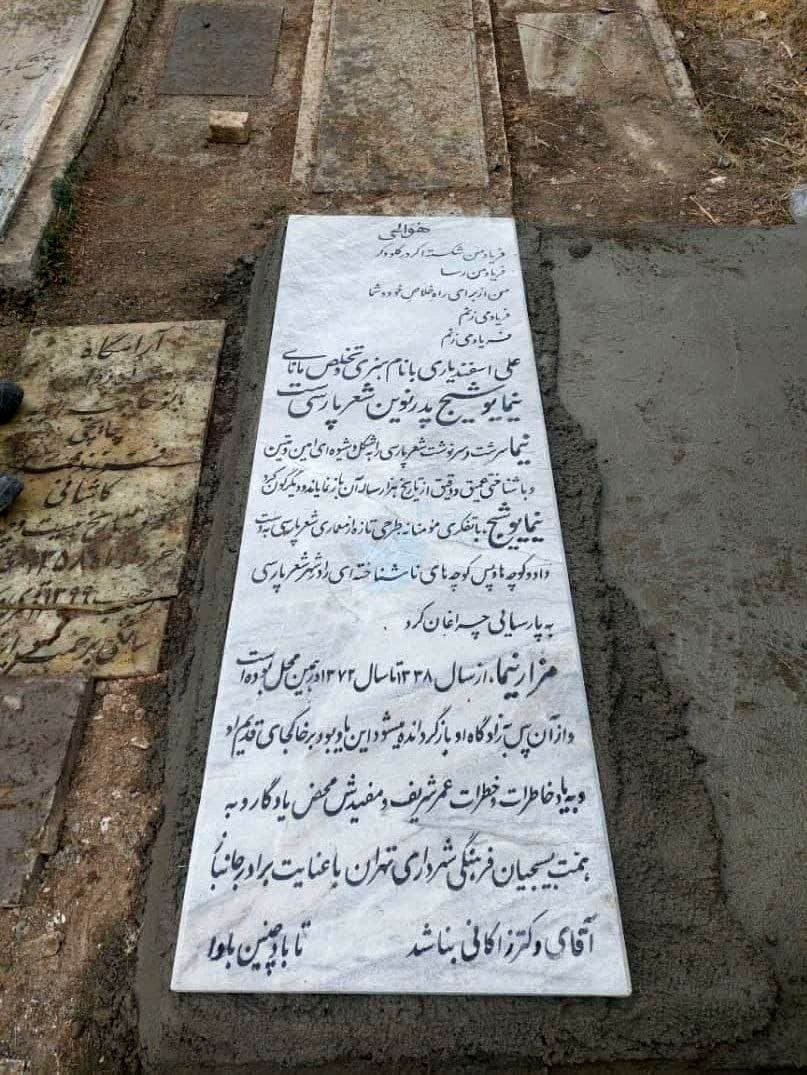 هوالحی
فریاد من شکسته اگر در گلو و گر
فریاد من رسا
من از برای راه خلاص خود و شما
فریاد می زنم
فریاد می زنم
علی اسفندیاری با نام هنری و تخلص مانای
نیما یوشیج پدر نوین شعر پارسی است
نیما سرشت و سرنوشت شعر پارسی را به شکل و شیوه ای امین و متین
و با شناختی عمیق و دقیق از تاریخ هزار ساله آن باز نمایاند و دیگرگون کرد
نیما یوشیج، با تفکری مؤمنانه طرحی تازه از معماری شعر پارسی به دست
داد و کوچه ها و پس کوچه های ناشناخته ای را در شهر شعر پارسی
به پارسایی چراغان کرد
مزار نیما، از سال ۱۳۳۸ تا سال ۱۳۷۲ در همین محل بوده است
و از آن پس به زادگاه او بازگردانده میشود این یادبود بر خاکجای قدیم او
و به یاد خاطرات و خطرات عمر شریف و مفیدش محض یادگار و به
همت بسیجیان فرهنگی شهرداری تهران با عنایت برادر جانباز
آقای دکتر زاکانی بنا شد تا باد چنین بادا
آرامگاه
چایچی
فرزند
کاشانی